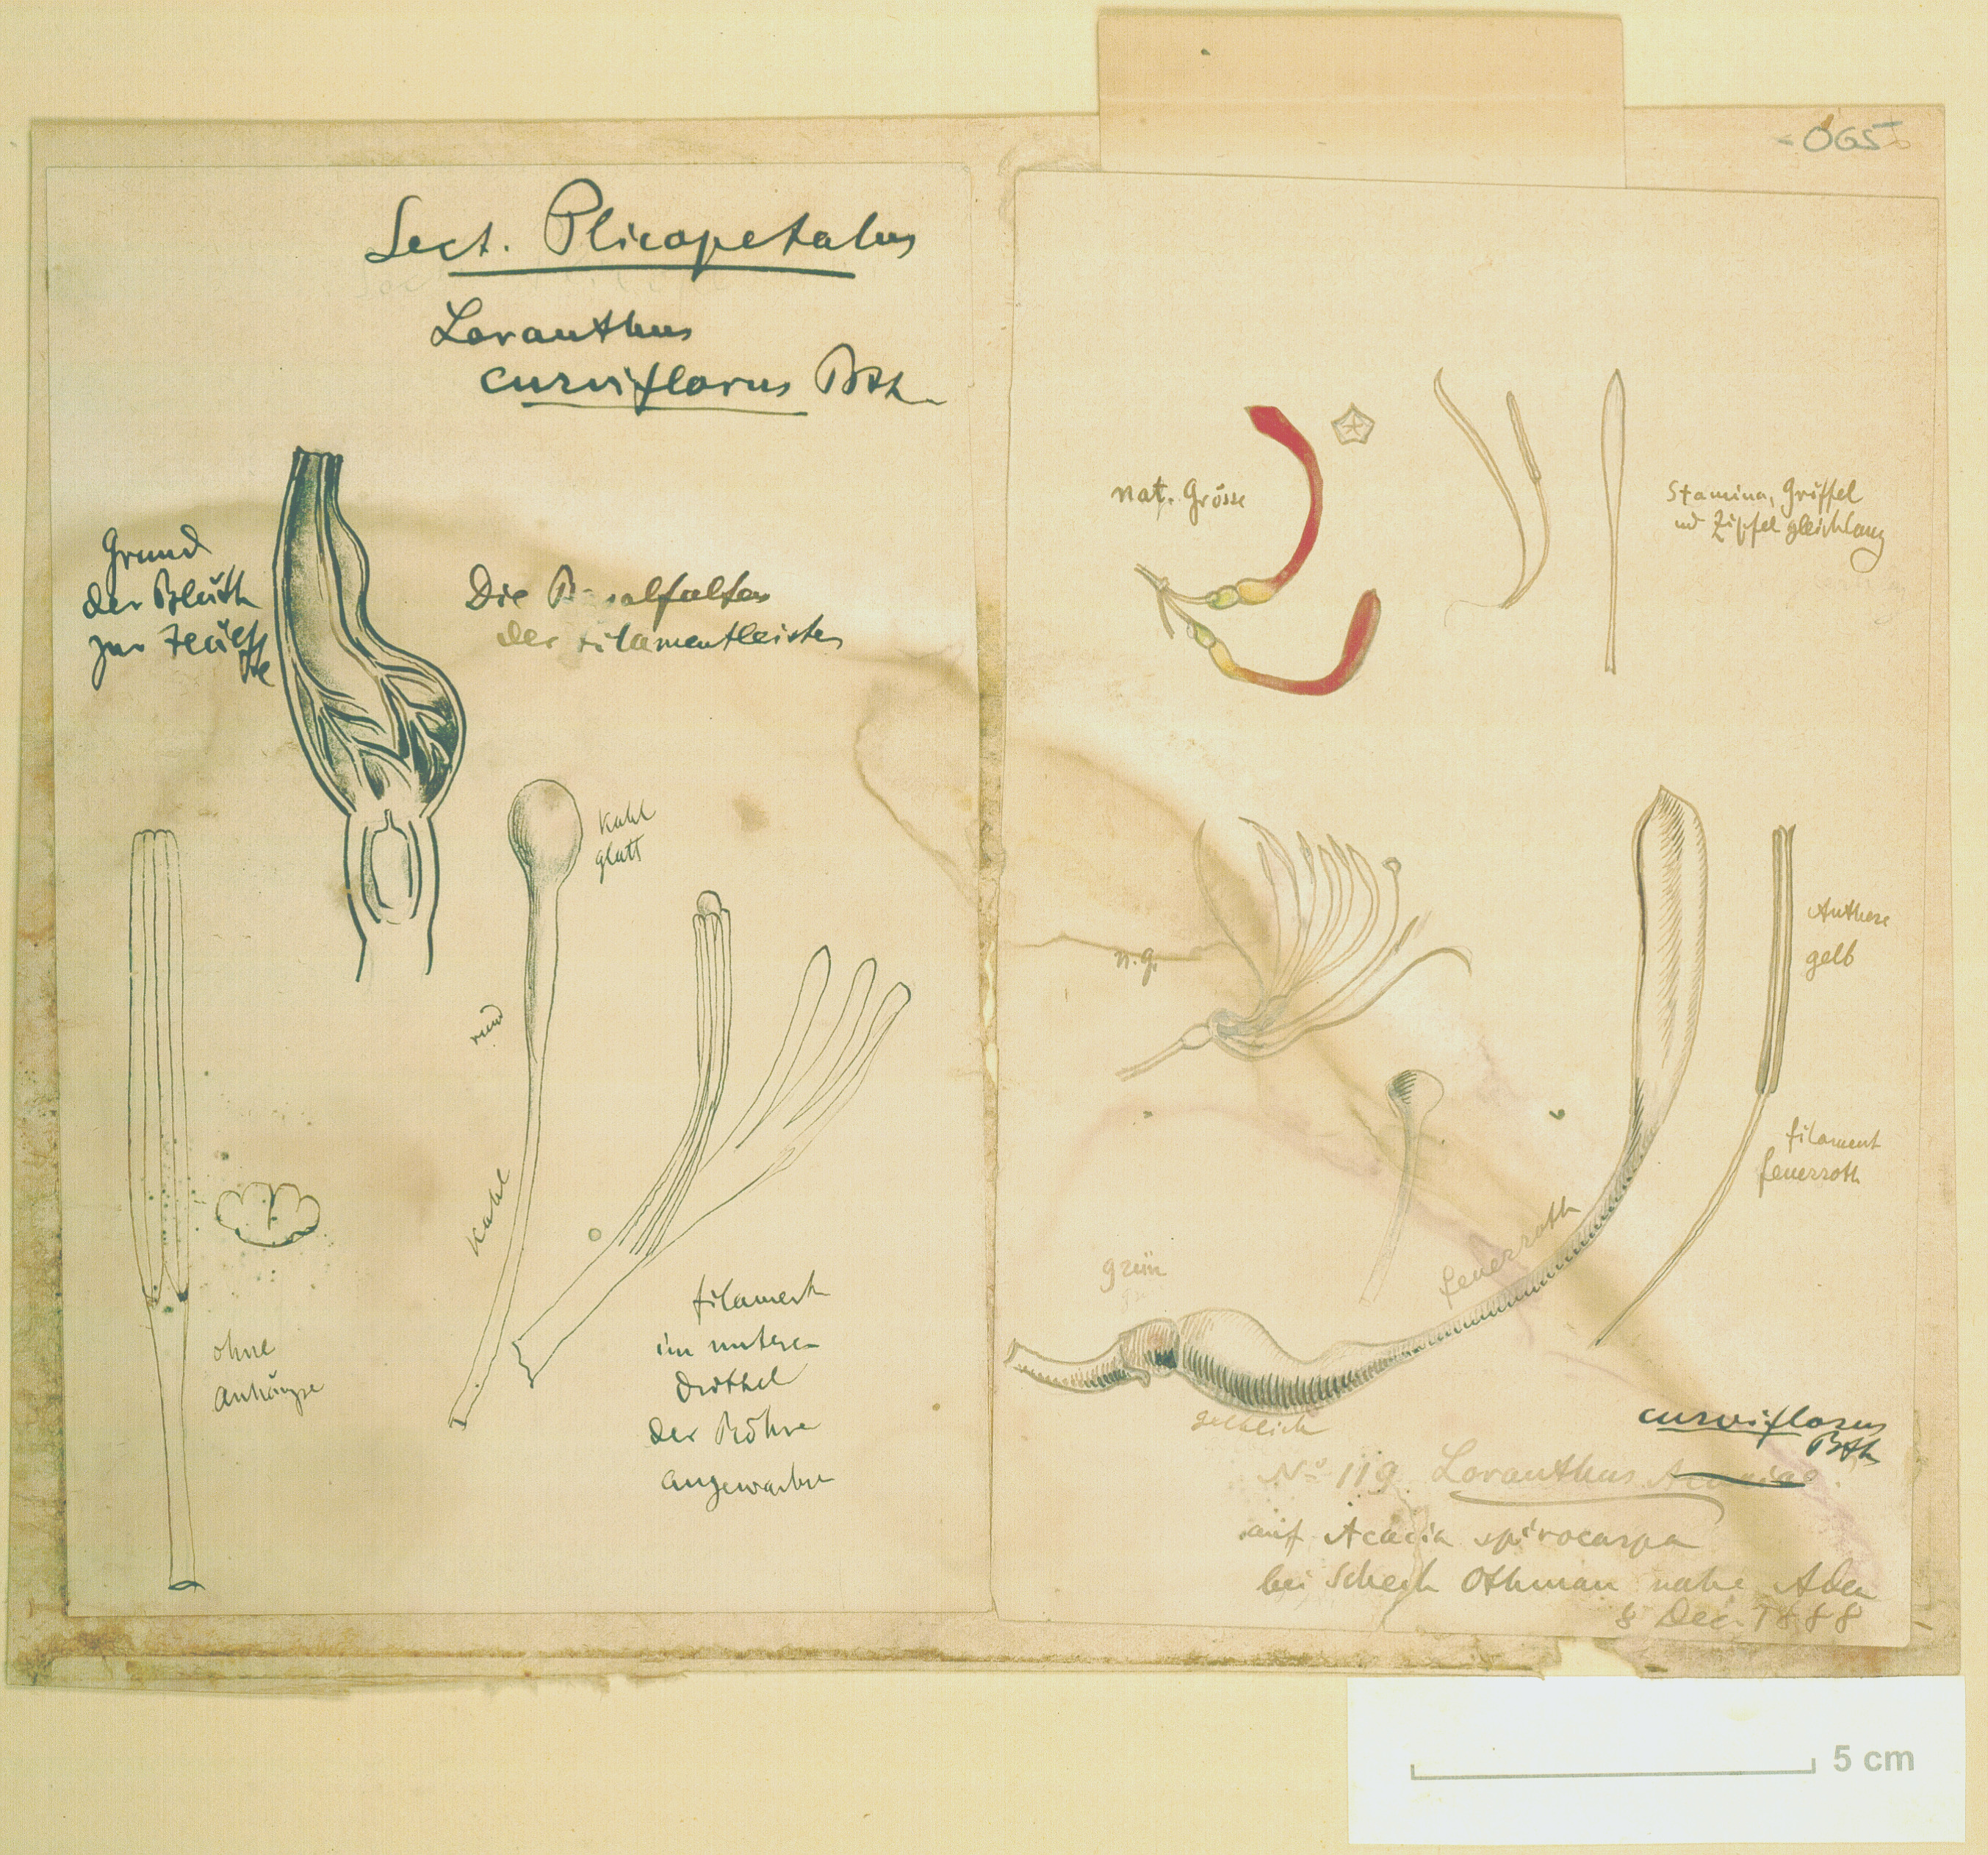 OG5
Sect. Plicopetalus
Loranthus
curviflorus Bth.
Grund
der Blüth
zur
Die Basalfalten
der Filamentleisten
kahl
glatt
rund
kahl
ohne
Anhänge
filament
im unteren
Drittel
der Röhre
angewachsen
nat. Grösse
Stamina, Griffel
und Zipfel gleichlang
n. g.
Anthere
gelb
filament
feuerroth
feuerroth
grün
gelblich
curviflorus
Bth
No 119. Loranthus Acaciae.
auf Acacia spirocarpa
bei Schech Othman nahe Aden
8 Dec. 1888
5 cm